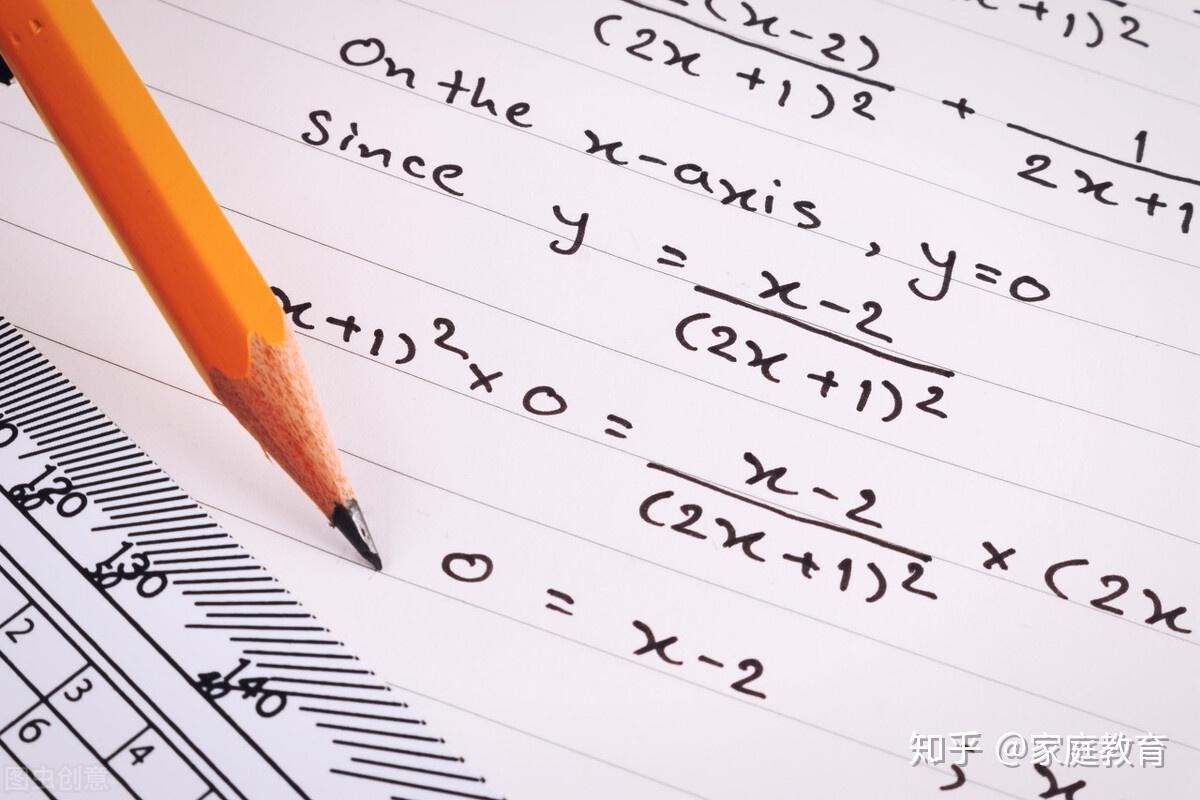 (x-2)
(2x+1)2 + 1
x+1)2
2x+1
On the x-axis, y=0
Since y = x-2
(2x+1)2
x+1)2 × 0 = x-2 × (2x
(2x+1)2
0 = x-2
; x
120
60
130
50
140
40
2
3
4
6
知乎 @家庭教育
图虫创意